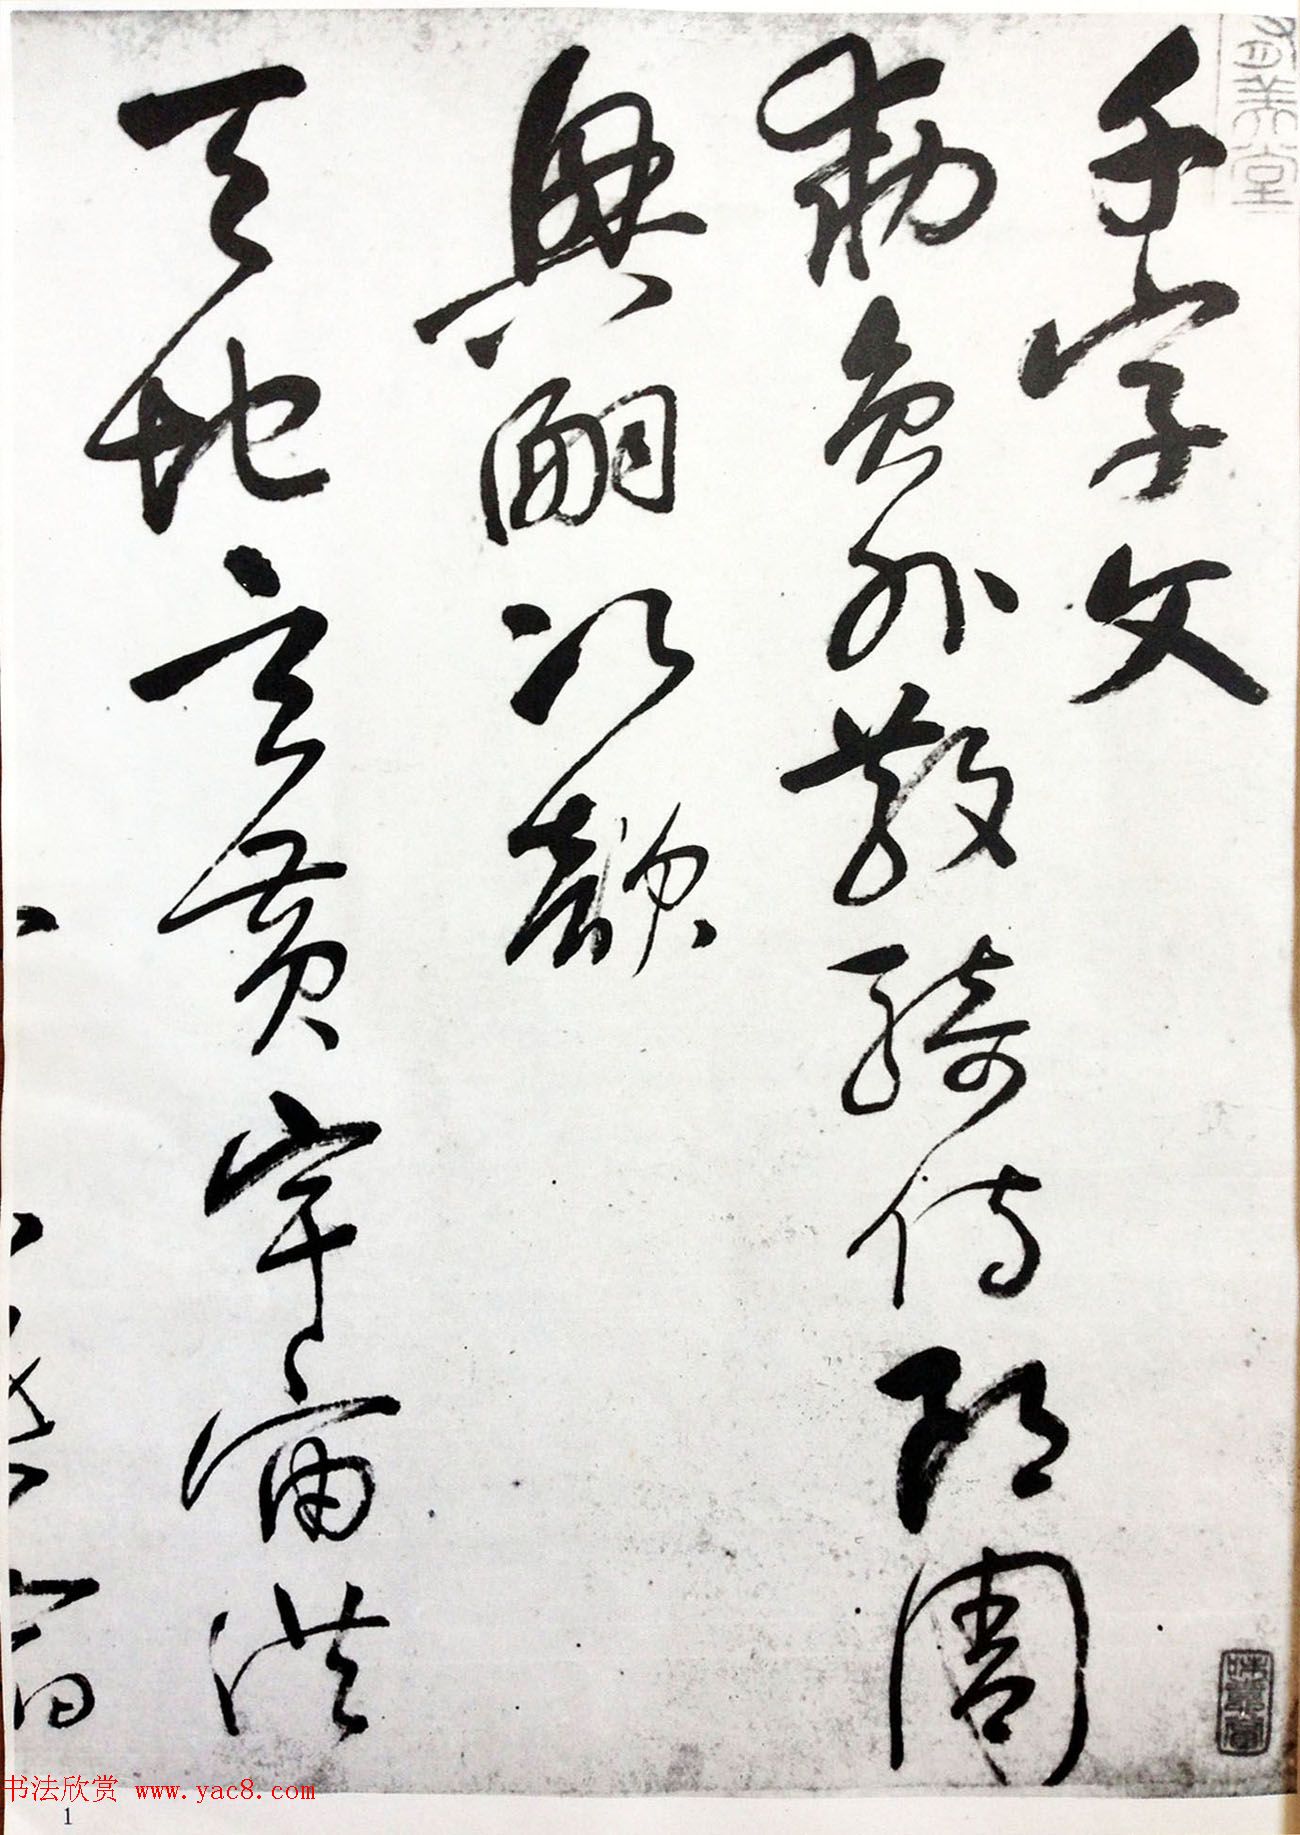 千字文
勑員外散騎侍郎周
興嗣次韻
天地玄黃宇宙洪
書法欣赏 www.yac8.com
1